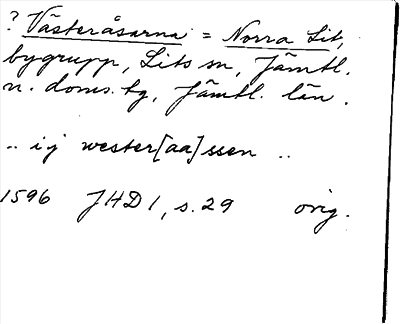 ? Västeråsarna = Norra Lit,
bygrupp, Lits sn, Jämtl.
n. doms. tg, Jämtl. län.
.. i j wester[aa]ssen ..
1596 JHD 1, s. 29 orig.